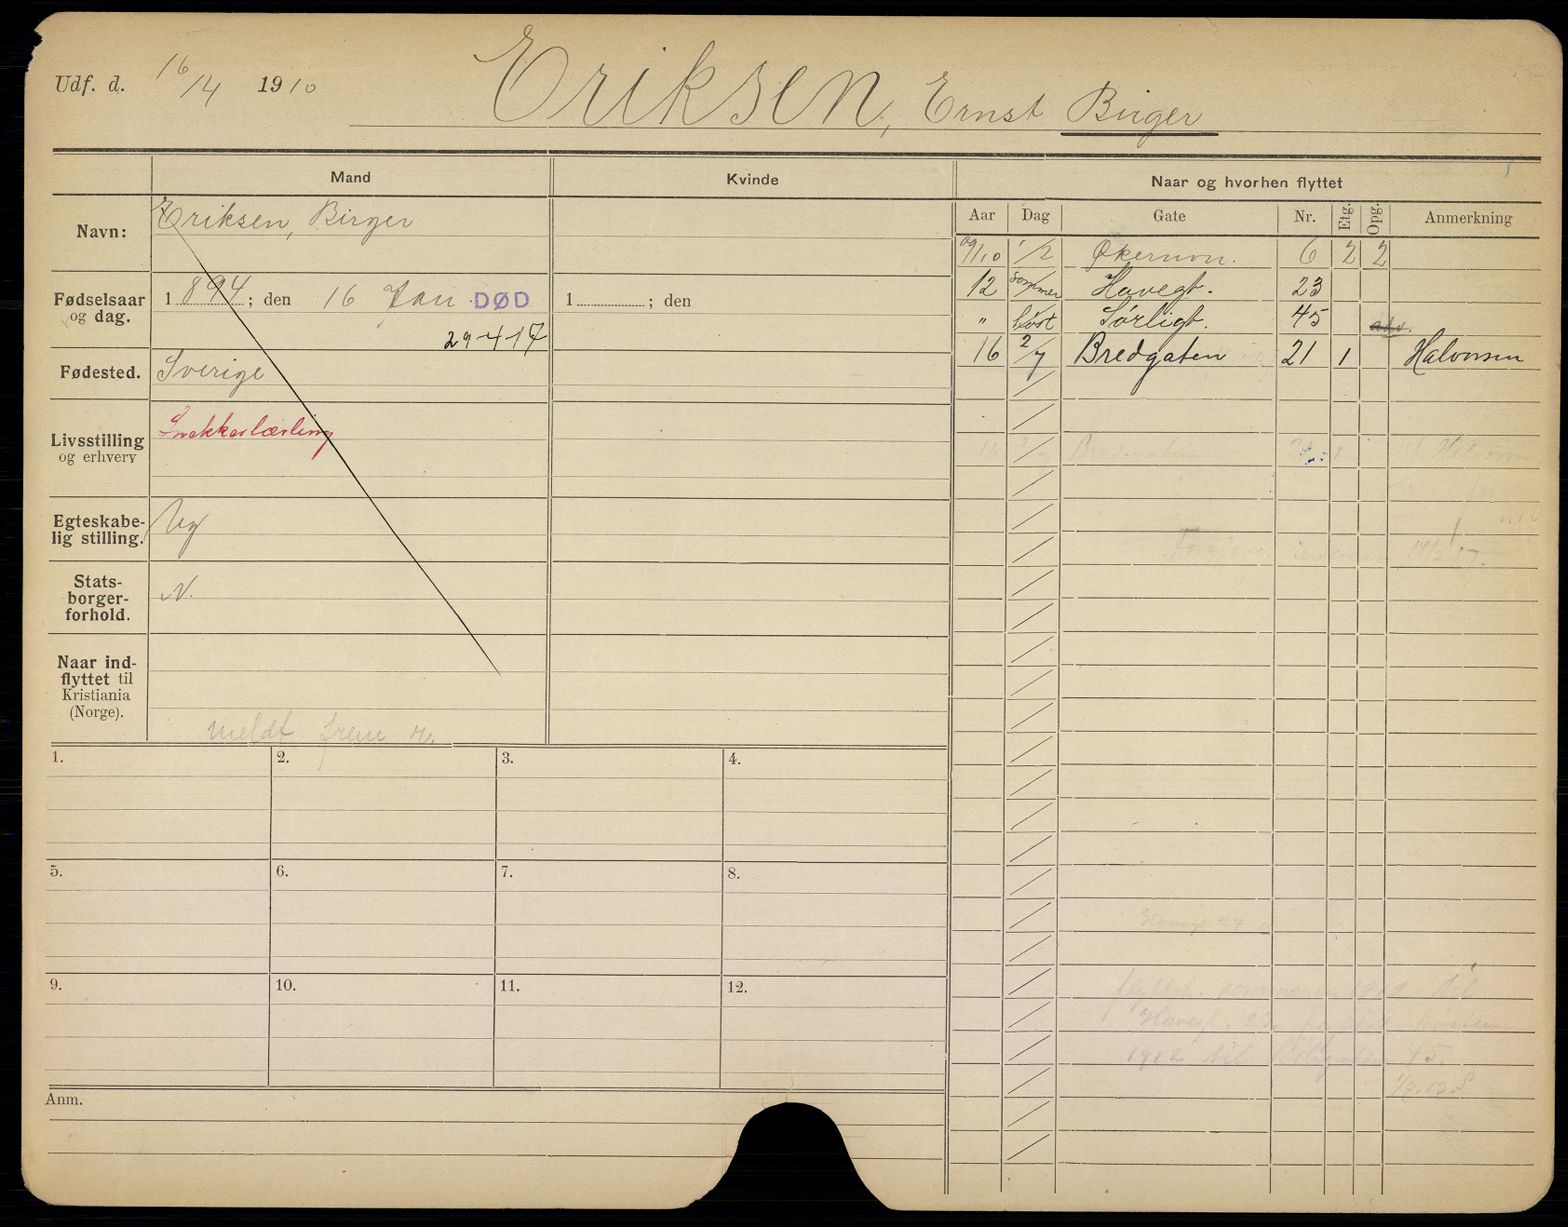 Udf. d. 16/4 1910 Eriksen, Ernst Birger
Mand Kvinde Naar og hvorhen flyttet
Navn: Eriksen, Birger
Fødselsaar og dag. 1894; den 16 Jan DØD 1 ; den
29-4-17
Fødested. Sverige
Livsstilling og erhverv Snekkerlærling
Egteskabelig stilling. Ug
Statsborgerforhold. N.
Naar indflyttet til Kristiania (Norge).
meldt
Aar Dag Gate Nr. Etg. Opg. Anmerkning
09/10 1/2 Økernvn. 6 2 2
12 sommer Havegt. 23
" høst Sørligt. 45
16 2/7 Bredgaten 21 1 Halvorsen
1. 2. 3. 4.
5. 6. 7. 8.
9. 10. 11. 12.
Anm.